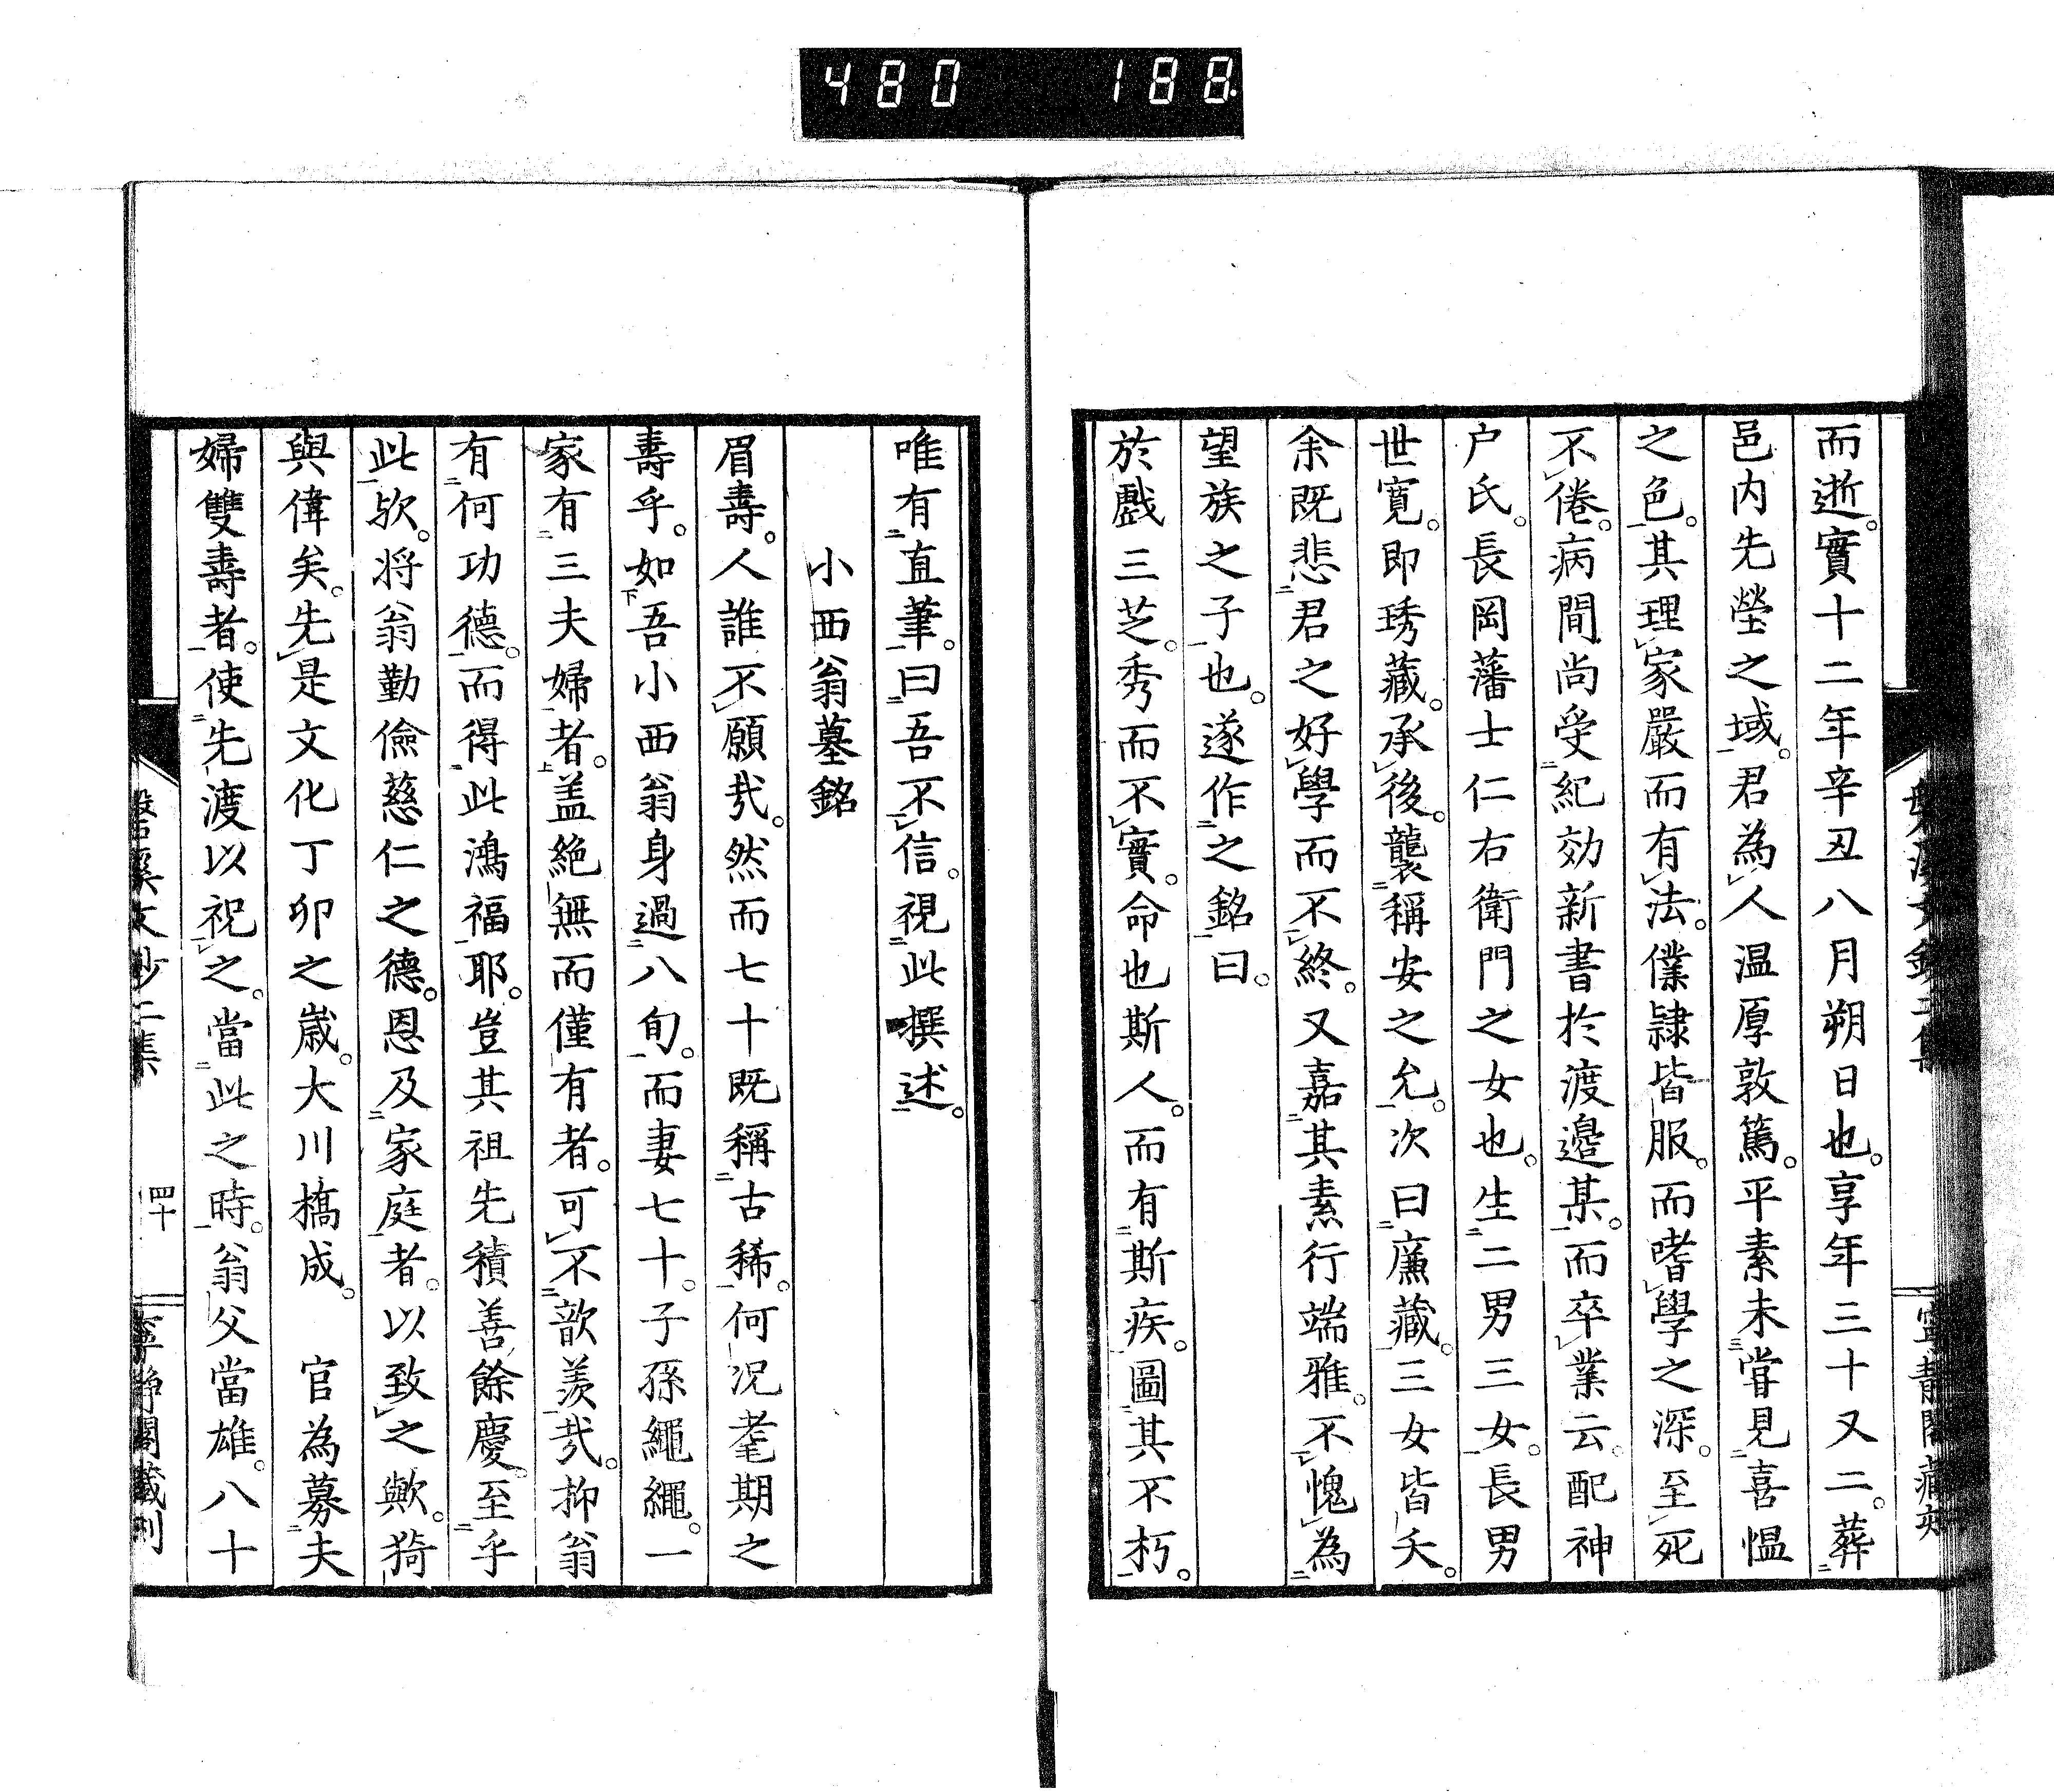 480 188
而逝。實十二年辛丑八月朔日也。享年三十又二。葬
邑内先塋之域。君為人温厚敦篤。平素未甞見喜愠
之色。其理家嚴而有法。僕隷皆服。而嗜學之深。至死
不倦。病間尚受紀効新書於渡邉某。而卒業云。配神
户氏。長岡藩士仁右衛門之女也。生二男三女。長男
世寛。即琇藏。承後。襲稱安之允。次曰廉藏。三女皆夭。
余既悲君之好學而不終。又嘉其素行端雅。不愧為
望族之子也。遂作之銘。曰。
於戲三芝。秀而不實。命也斯人。而有斯疾。圖其不朽。
唯有直筆。曰吾不信。視此撰述。
小西翁墓銘
眉壽。人誰不願㢤。然而七十既稱古稀。何况耄期之
壽乎。如吾小西翁身過八旬。而妻七十。子孫繩繩。一
家有三夫婦者。盖絶無而僅有者。可不歆羨㢤。抑翁
有何功德。而得此鴻福耶。豈其祖先積善餘慶。至乎
此欤。将翁勤儉慈仁之德。恩及家庭者。以致之歟。猗
與偉矣。先是文化丁卯之嵗。大川橋成。 官為募夫
婦雙壽者。使先渡以祝之。當此之時。翁父當雄。八十
四十